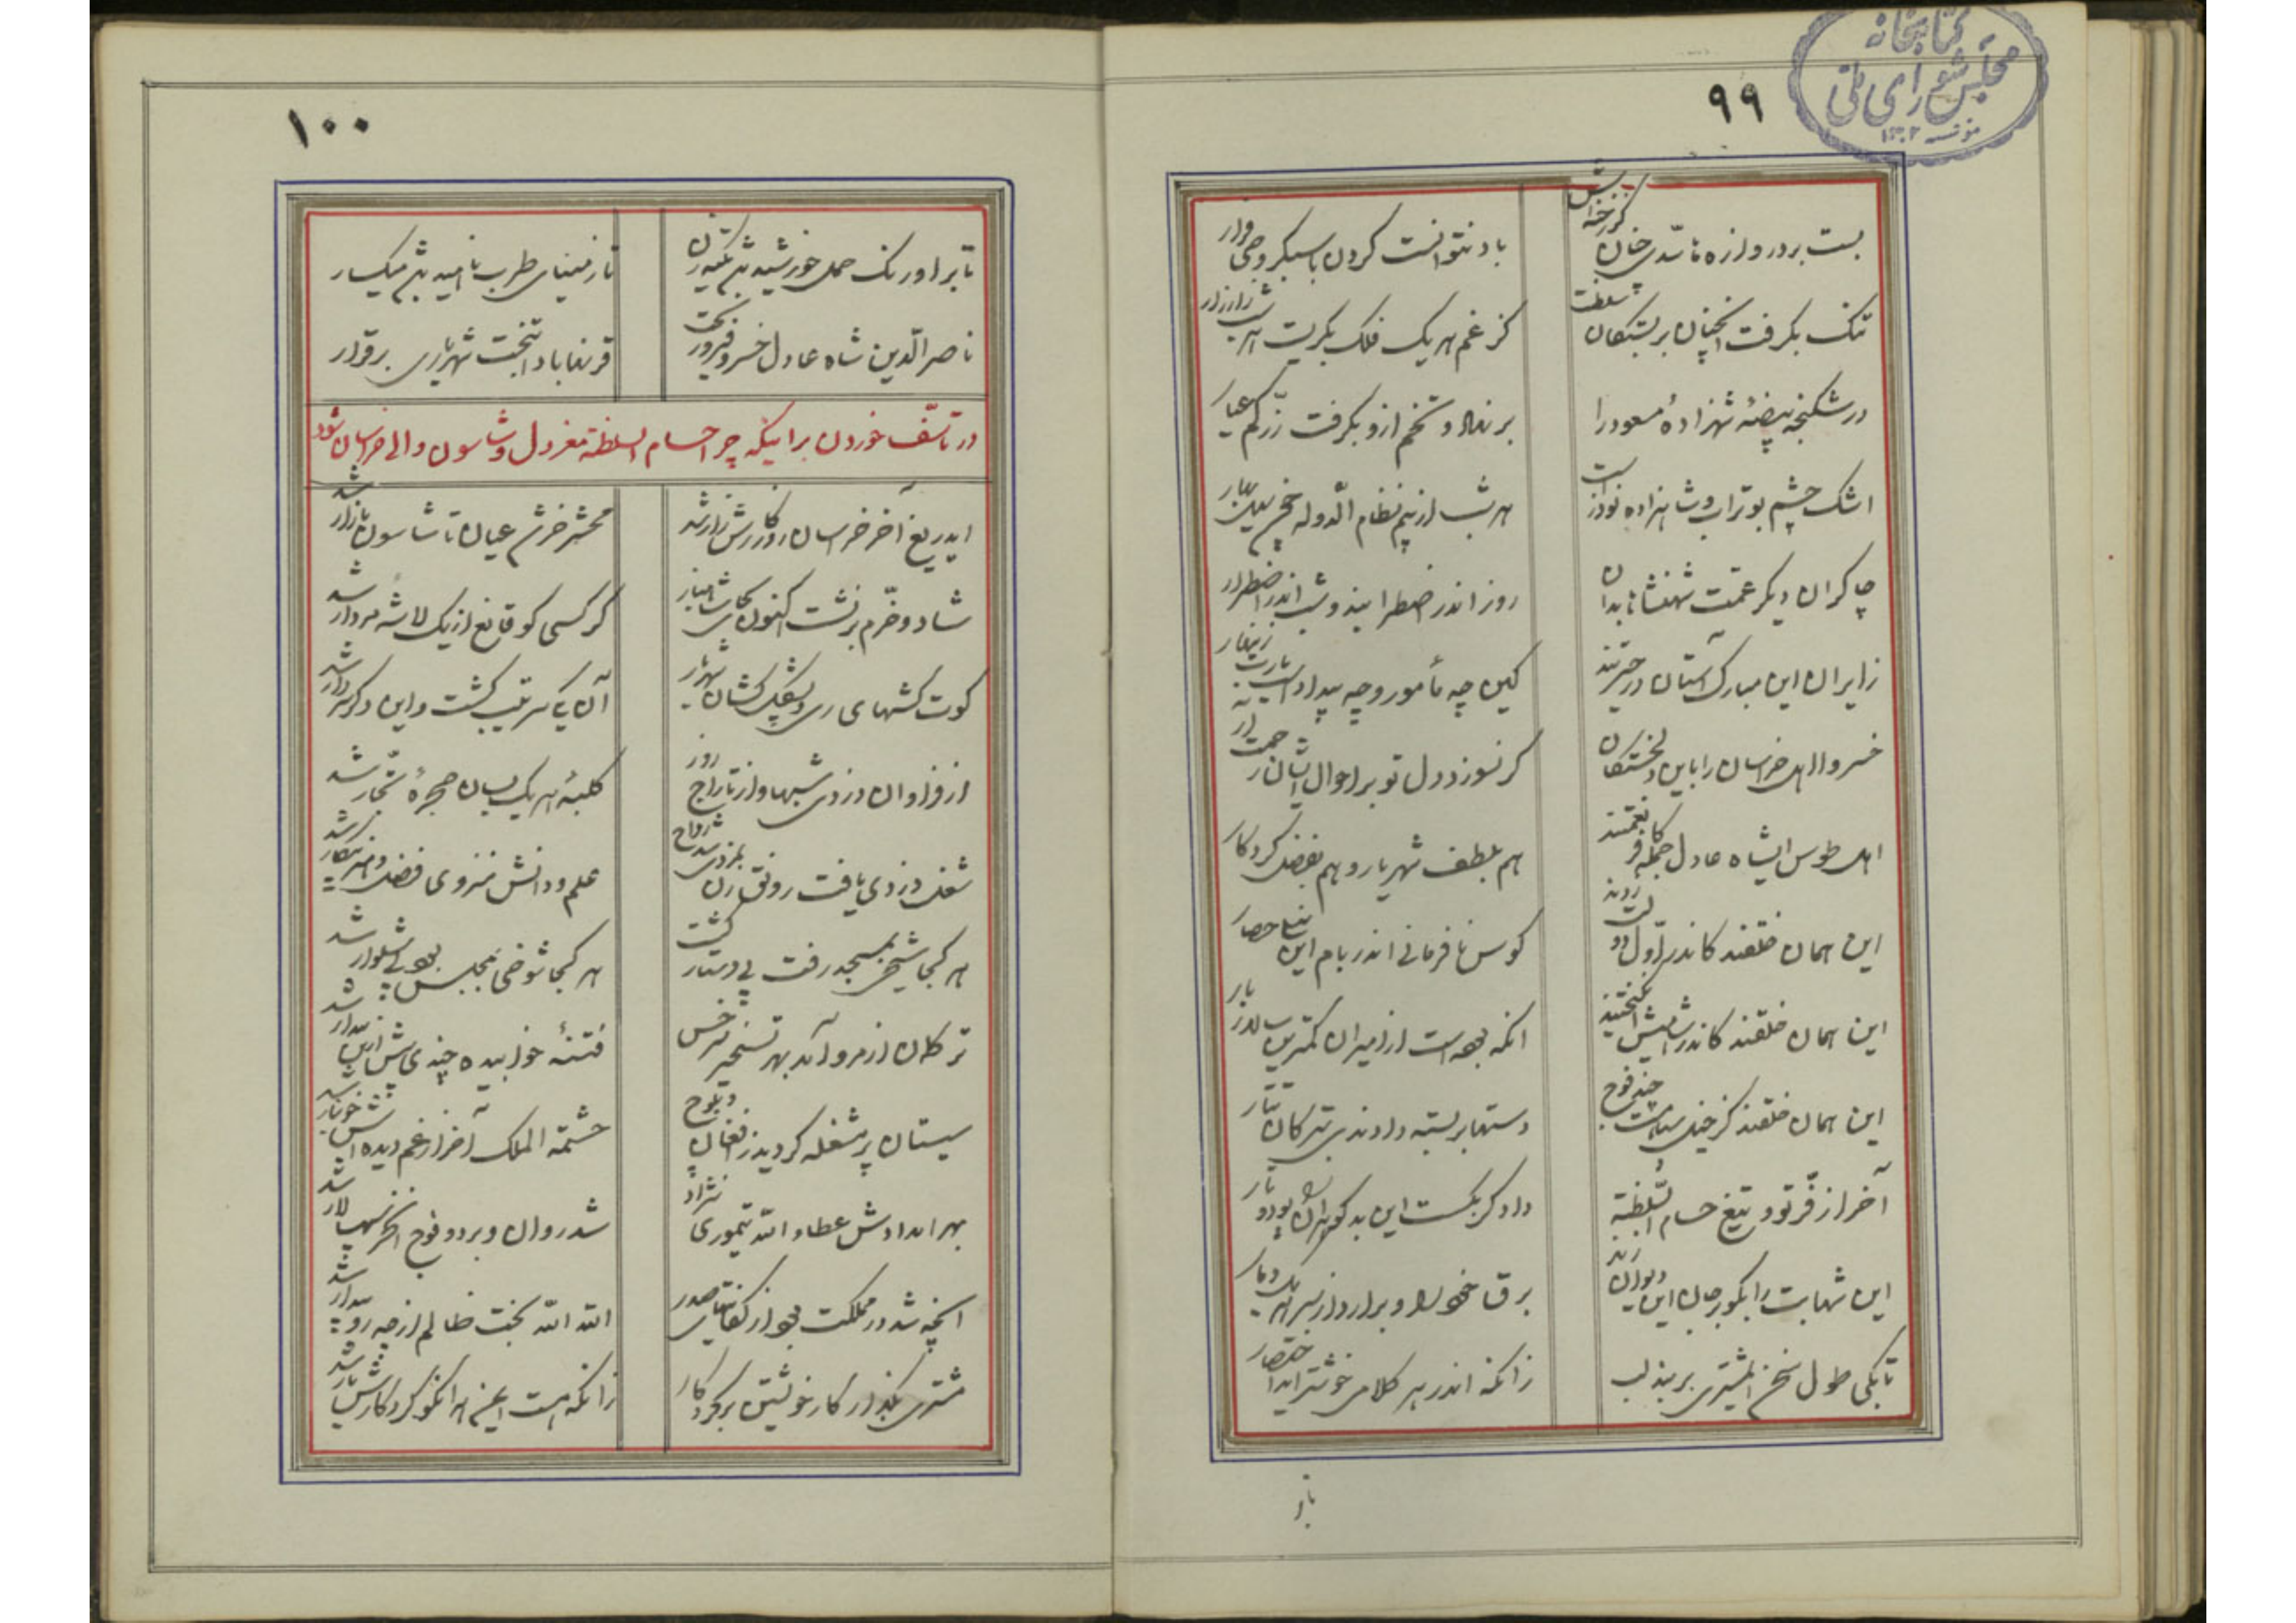 کتابخانه
مجلس شورای ملی
۹۹
بست بر دروازه تا سدی خان کز خواجش
باد نتوانست کردن با سبکروحی گذار
تنک بکرفت انچنان بر بستکان سلطنت
کز غم هر یک فلک بکریست هر شب زار زار
در شکنجه بیضهٔ شهزادهٔ مسعود را
برنهاد و تخم ازو بکرفت زر کم عیار
اشک چشم بوتراب و شاهزاده نوذر است
هر شب از بیم نظام الدوله
چاکران دیکر عمت شهنشاها بدان
روز اندر اضطرابند و شب اندر اضطرار
زایران این مبارک آستان در حیرتند
کین چه مأمور و چه بیداد است یارب زینهار
خسروا اهل خراسان را باین دلخستکان
کر نسوزد دل تو بر احوال ایشان رحمت ار
اهل طوس ایشاه عادل جمله کافر نعمتند
هم بلطف شهریار و هم بفضل کردکار
این همان خلقند کاندر اول دولت زدند
کوس نافرمانی اندر بام این نیلی حصار
این همان خلقند کاندر
انکه بوده است از امیران کمترین سالار بار
این همان خلقند کز خیل سپاهت چند فوج
دستها بربسته دادندی بترکان تتار
آخر از فر تو و تیغ حسام السلطنه
داد کر بکسست این بدکوهران را پود و تار
این شهابت را بکو بر جان این دیوان زند
برق خنجر و برآرد از سر هر یک دمار
تا بکی طول سخن ای مشتری بر بند لب
زانکه اندر هر کلامی خوشتر آید اختصار
تا بر
۱۰۰
تا بر اورنک حمل خورشید شد تکیه زن
تا ز مینای طرب ناهید شد میکسار
ناصر الدین شاه عادل خسرو فیروز بخت
قرنها بادا بتخت شهریاری برقرار
در تاسف خوردن بر اینکه چرا حسام السلطنه معزول و شاسون والی خراسان شود
ایدریغ آخر خراسان روزکارش زار شد
محشر خر شد عیان تا شاسون بازار شد
شاد و خرم برنشست اکنون بجای شاهباز
کرکسی کو قانع از یک لاشه مردار شد
کوت کشهای ری و پشکل کشان شهریار
آن یکی سرتیب کشت و این دکر سردار شد
از فراوان دزدی شبها و از تاراج روز
کلبهٔ هر یک بسان حجرهٔ تجار شد
شغل دزدی یافت رونق زن بمزدی شد رواج
علم و دانش منزوی فضل و هنر بیکار شد
هر کجا شیخی بمسجد رفت بی دستار کشت
هر کجا شوخی بمجلس بود بی شلوار شد
ترکمان از مرو آمد بهر تسخیر سرخس
فتنهٔ خوابیده چندی پیش ازین بیدار شد
سیستان پر مشغله کردید ز افغان و بلوچ
حشمة الملک آخر از غم دیده اش خونبار شد
بهر امدادش عطاء الله تیموری نژاد
شد روان و بر دو فوج انحر سپهسالار شد
انچه شد در مملکت بود از کفایتهای صدر
الله الله بخت ظالم از چه رو بیدار شد
مشتری بکذار کار خویشتن بر کردکار
زانکه هست ایمن هرانکو کردکارش یار شد